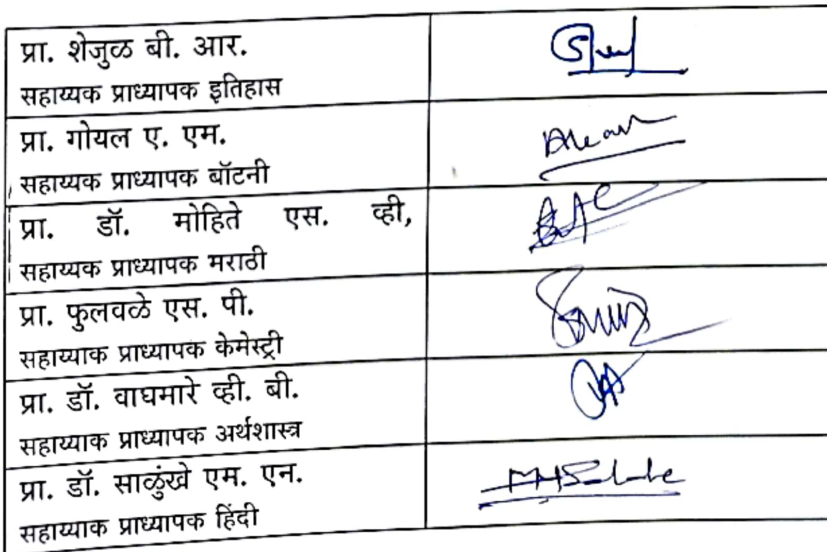 प्रा. शेजुळ बी. आर.
सहाय्यक प्राध्यापक इतिहास
प्रा. गोयल ए. एम.
सहाय्यक प्राध्यापक बॉटनी
प्रा. डॉ. मोहिते एस. व्ही,
सहाय्यक प्राध्यापक मराठी
प्रा. फुलवळे एस. पी.
सहाय्याक प्राध्यापक केमेस्ट्री
प्रा. डॉ. वाघमारे व्ही. बी.
सहाय्याक प्राध्यापक अर्थशास्त्र
प्रा. डॉ. साळुंखे एम. एन.
सहाय्याक प्राध्यापक हिंदी